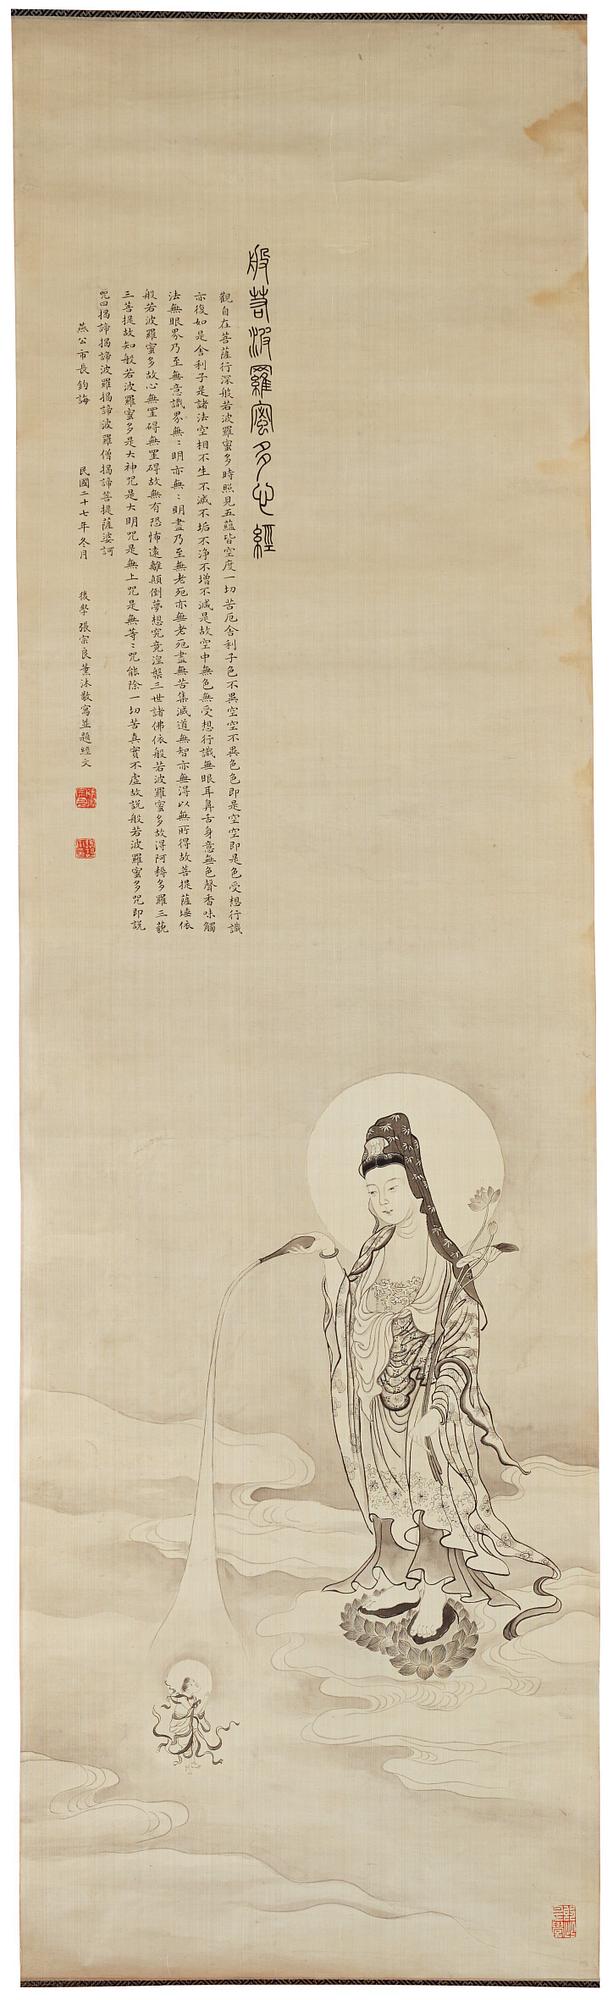 般若波羅蜜多心經
觀自在菩薩行深般若波羅蜜多時照見五蘊皆空度一切苦厄舍利子色不異空空不異色色即是空空即是色受想行識
亦復如是舍利子是諸法空相不生不滅不垢不淨不增不減是故空中無色無受想行識無眼耳鼻舌身意無色聲香味觸
法無眼界乃至無意識界無〻明亦無〻明盡乃至無老死亦無老死盡無苦集滅道無智亦無得以無所得故菩提薩埵依
般若波羅蜜多故心無罣礙無罣礙故無有恐怖遠離顛倒夢想究竟湼槃三世諸佛依般若波羅蜜多故得阿耨多羅三藐
三菩提故知般若波羅蜜多是大神咒是大明咒是無上咒是無等〻咒能除一切苦真實不虛故說般若波羅蜜多咒即說
咒曰揭諦揭諦波羅揭諦波羅僧揭諦菩提薩婆訶
燕公市長鈞誨
民國二十七年冬月
後學張宗良薰沐敬寫並題經文